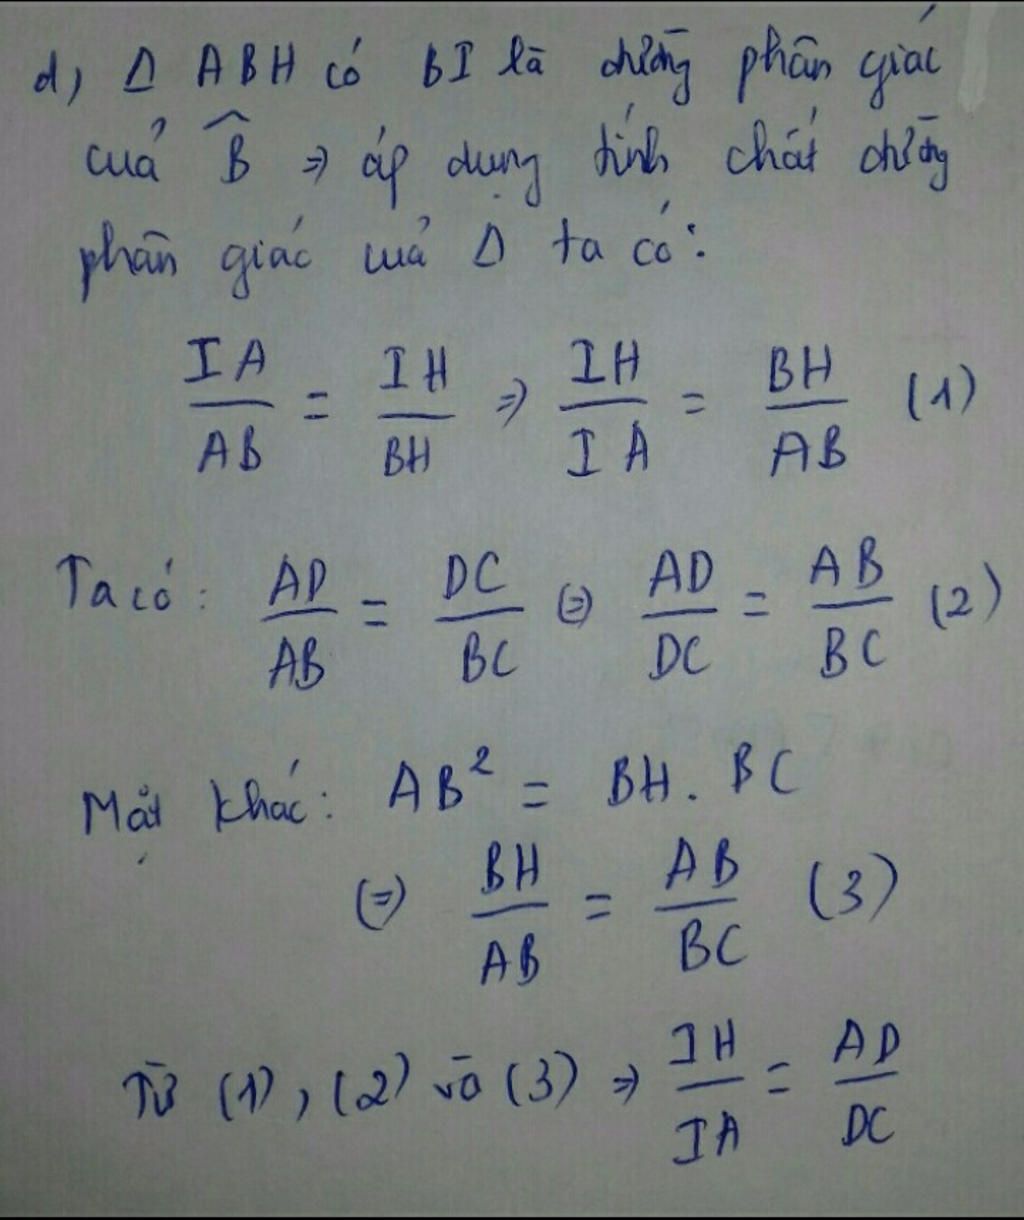 d, Δ ABH có BI là đường phân giác
của B̂ ⇒ áp dụng tính chất đường
phân giác của Δ ta có:
IA/AB = IH/BH ⇒ IH/IA = BH/AB (1)
Ta có: AD/AB = DC/BC ⇔ AD/DC = AB/BC (2)
Mặt khác: AB² = BH . BC
⇔ BH/AB = AB/BC (3)
Từ (1), (2) và (3) ⇒ IH/IA = AD/DC